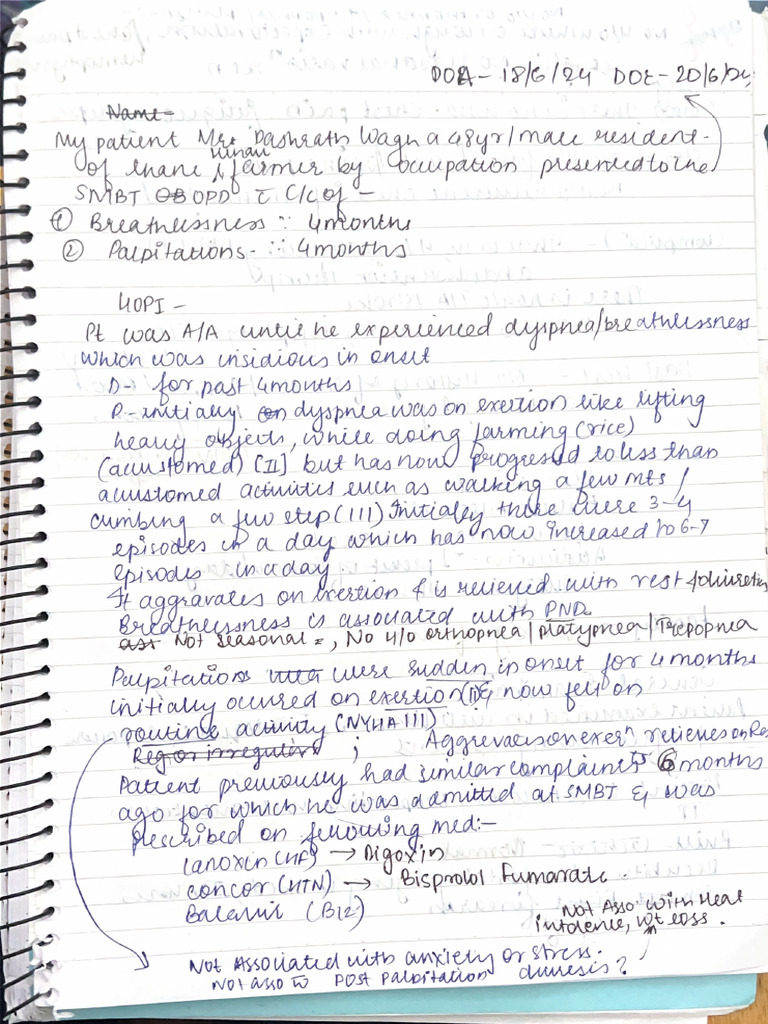 DOA - 18/6/24 DOE - 20/6/24
Name -
My patient Mr. Dashrath Wagh a 48yr/male resident
of thane, hindu farmer by occupation presented to the
SMBT OPD c̄ C/c of -
① Breathlessness ∵ 4 months
② Palpitations - ∵ 4 months
HOPI -
Pt was A/A until he experienced dyspnea/breathlessness
which was insidious in onset
D - for past 4 months
P - initially dyspnea was on exertion like lifting
heavy objects, while doing farming (rice)
(accustomed) [II] but has now progressed to less than
acustomed activities such as walking a few mts /
climbing a few step (III) Initially there were 3-4
episodes in a day which has now increased to 6-7
episodes in a day.
It aggravates on exertion & is relieved with rest /diuretics
Breathlessness is associated with PND
Not seasonal, No H/o orthopnea / platypnea / Trepopnea
Palpitations were sudden in onset for 4 months
initially occured on exertion (II) & now felt on
routine activity (NYHA III)
Reg or irregular ; Aggrevates on exer" relieves on Res
Patient previously had similar complaints 6 months
ago for which he was admitted at SMBT & was
prescribed on following med:-
Lanoxin (HF) → Digoxin
Concor (HTN) → Bisprolol Fumarate.
(B12)
Not Asso with Heat
intolence, wt loss.
Not Associated with anxiety or stress.
Not asso c̄ post palpitation diuresis?